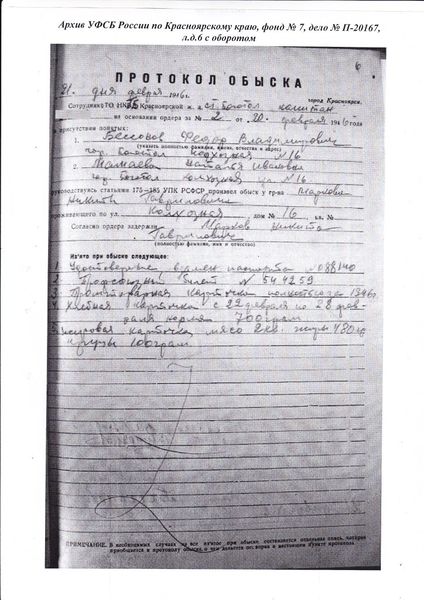 Архив УФСБ России по Красноярскому краю, фонд № 7, дело № П-20167,
л.д.6 с оборотом
6
ПРОТОКОЛ ОБЫСКА
21. дня февраля 1946 г.
город Красноярск.
Сотрудник ТО НКГБ Красноярской ж. д. ст. Боготол капитан
на основании ордера за № 2 от 20. февраля 1946 года
в присутствии понятых:
1. Бессонов Федор Владимирович
(указать полностью фамилии, имена, отчества и адрес)
гор. Боготол Колхозная № 16
2. Мамаева Наталья Ивановна
гор. Боготол Колхозная ул. № 16
руководствуясь статьями 175—185 УПК РСФСР, произвел обыск у гр-на Маркова
Никиты Гавриловича
проживающего по ул. Колхозная дом № 16 кв. №
Согласно ордера задержан Марков Никита
Гаврилович
(полностью фамилия, имя и отчество)
Изъято при обыске следующее:
1. Удостоверение взамен паспорта № 088140
2. Профсоюзный билет № 544259
3. Промтоварная карточка 1946
4. Хлебная карточка с 22 февраля по 28 фев-
раля норма 700 грам.
карточка мясо 2 кг. жиры 480 гр
крупы 100 грам.
ПРИМЕЧАНИЕ. В необходимых случаях на все из'ятое при обыске составляется отдельная опись, которая
приобщается к протоколу обыска, о чем делается оговорка в настоящем пункте протокола.